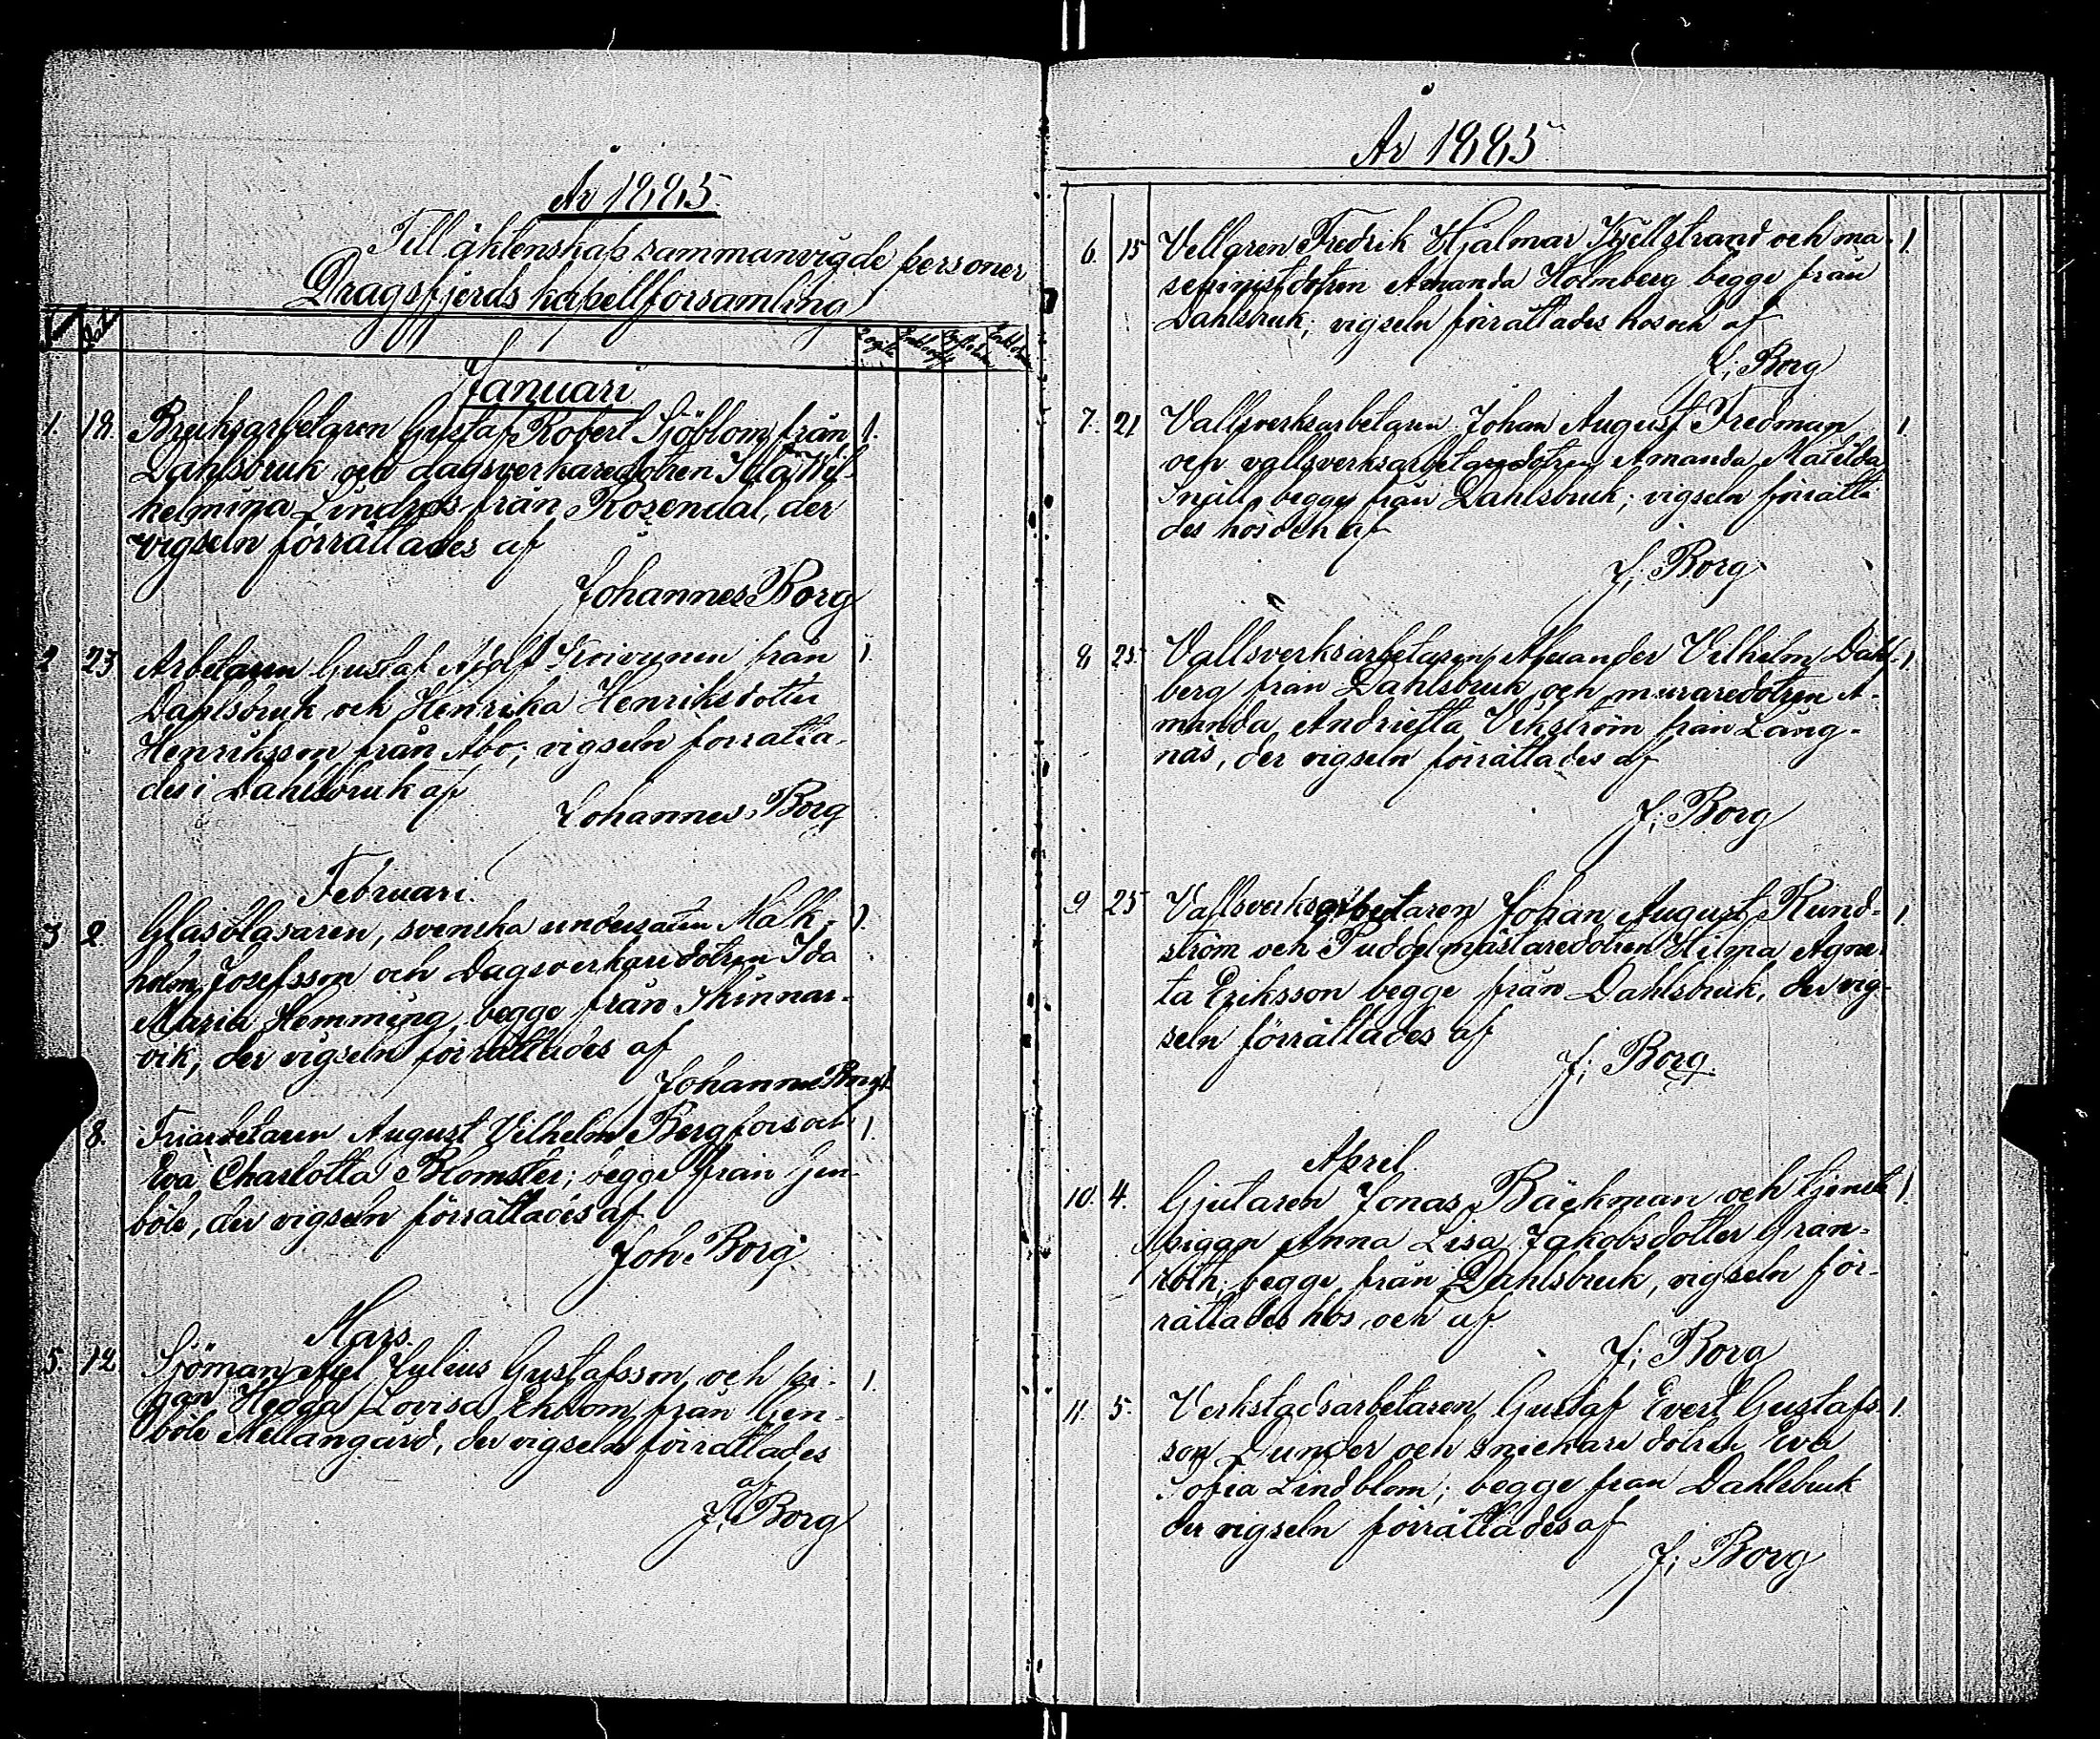 År 1885.
Till äktenskap sammanvigde personer
Dragsfjerds kapellförsamling
Januari
1. 18. Bruksarbetaren Gustaf Robert Sjöblom från 1.
Dahlsbruk och dagsverkaredotren Ida Wil-
helmina Lindros från Rosendal, der
vigseln förrättades af
Johannes Borg
2 23 Arbetaren Gustaf Adolf Koivunen från 1.
Dahlsbruk och Henrika Henriksdotter
Henriksson från Åbo; vigseln förrätta-
des i Dahlsbruk af
Johannes Borg
Februari.
3 2. Glasblasaren, svenska undersåten Malk- 1.
holm Josefsson och Dagsverkaredotren Ida
Maria Hemming, begge från Skinnar-
vik, der vigseln förrättades af
Johannes Borg
8. Friarbetaren August Vilhelm Bergfors och 1.
Eva Charlotta Blomster; begge från Gen-
böle, der vigseln förrättades af
Joh. Borg
Mars.
5. 12 Sjöman Axel Julius Gustafsson och pi- 1.
gan Hedda Lovisa Ekbom från Gen-
böle Mellangård, der vigseln förrättades
af
J. Borg
År 1885
6. 15 Vellaren Fredrik Hjalmar Kjellstrand och ma- 1.
schinistdotren Amanda Holmberg begge från
Dahlsbruk; vigseln förrättades hos och af
J; Borg
7. 21 Vallsverksarbetaren Johan August Fredman 1.
och vallsverksarbetaredotren Amanda Matilda
Snäll, begge från Dahlsbruk; vigseln förrätta
des hos och af
J; Borg
8 25. Vallsverksarbetaren Alexander Vilhelm Dahl- 1
berg från Dahlsbruk och muraredotren A-
manda Andrietta Vikström från Lång-
näs, der vigseln förrättades af
J; Borg
9 25 Vallsverksarbetaren Johan August Rund- 1.
ström och Puddelmästaredotren Hilma Agne-
ta Eriksson begge från Dahlsbruk, der vig-
seln förrättades af
J; Borg.
April.
10. 4. Gjutaren Jonas Bäckman och tjenste 1.
pigan Anna Lisa Jakobsdotter Gran-
roth; begge från Dahlsbruk, vigseln för-
rättades hos och af
J; Borg
11. 5. Verkstadsarbetaren Gustaf Evert Gustafs- 1.
son Dunder och snickaredotren Eva
Sofia Lindblom; begge från Dahlsbruk
der vigseln förrättades af
J; Borg